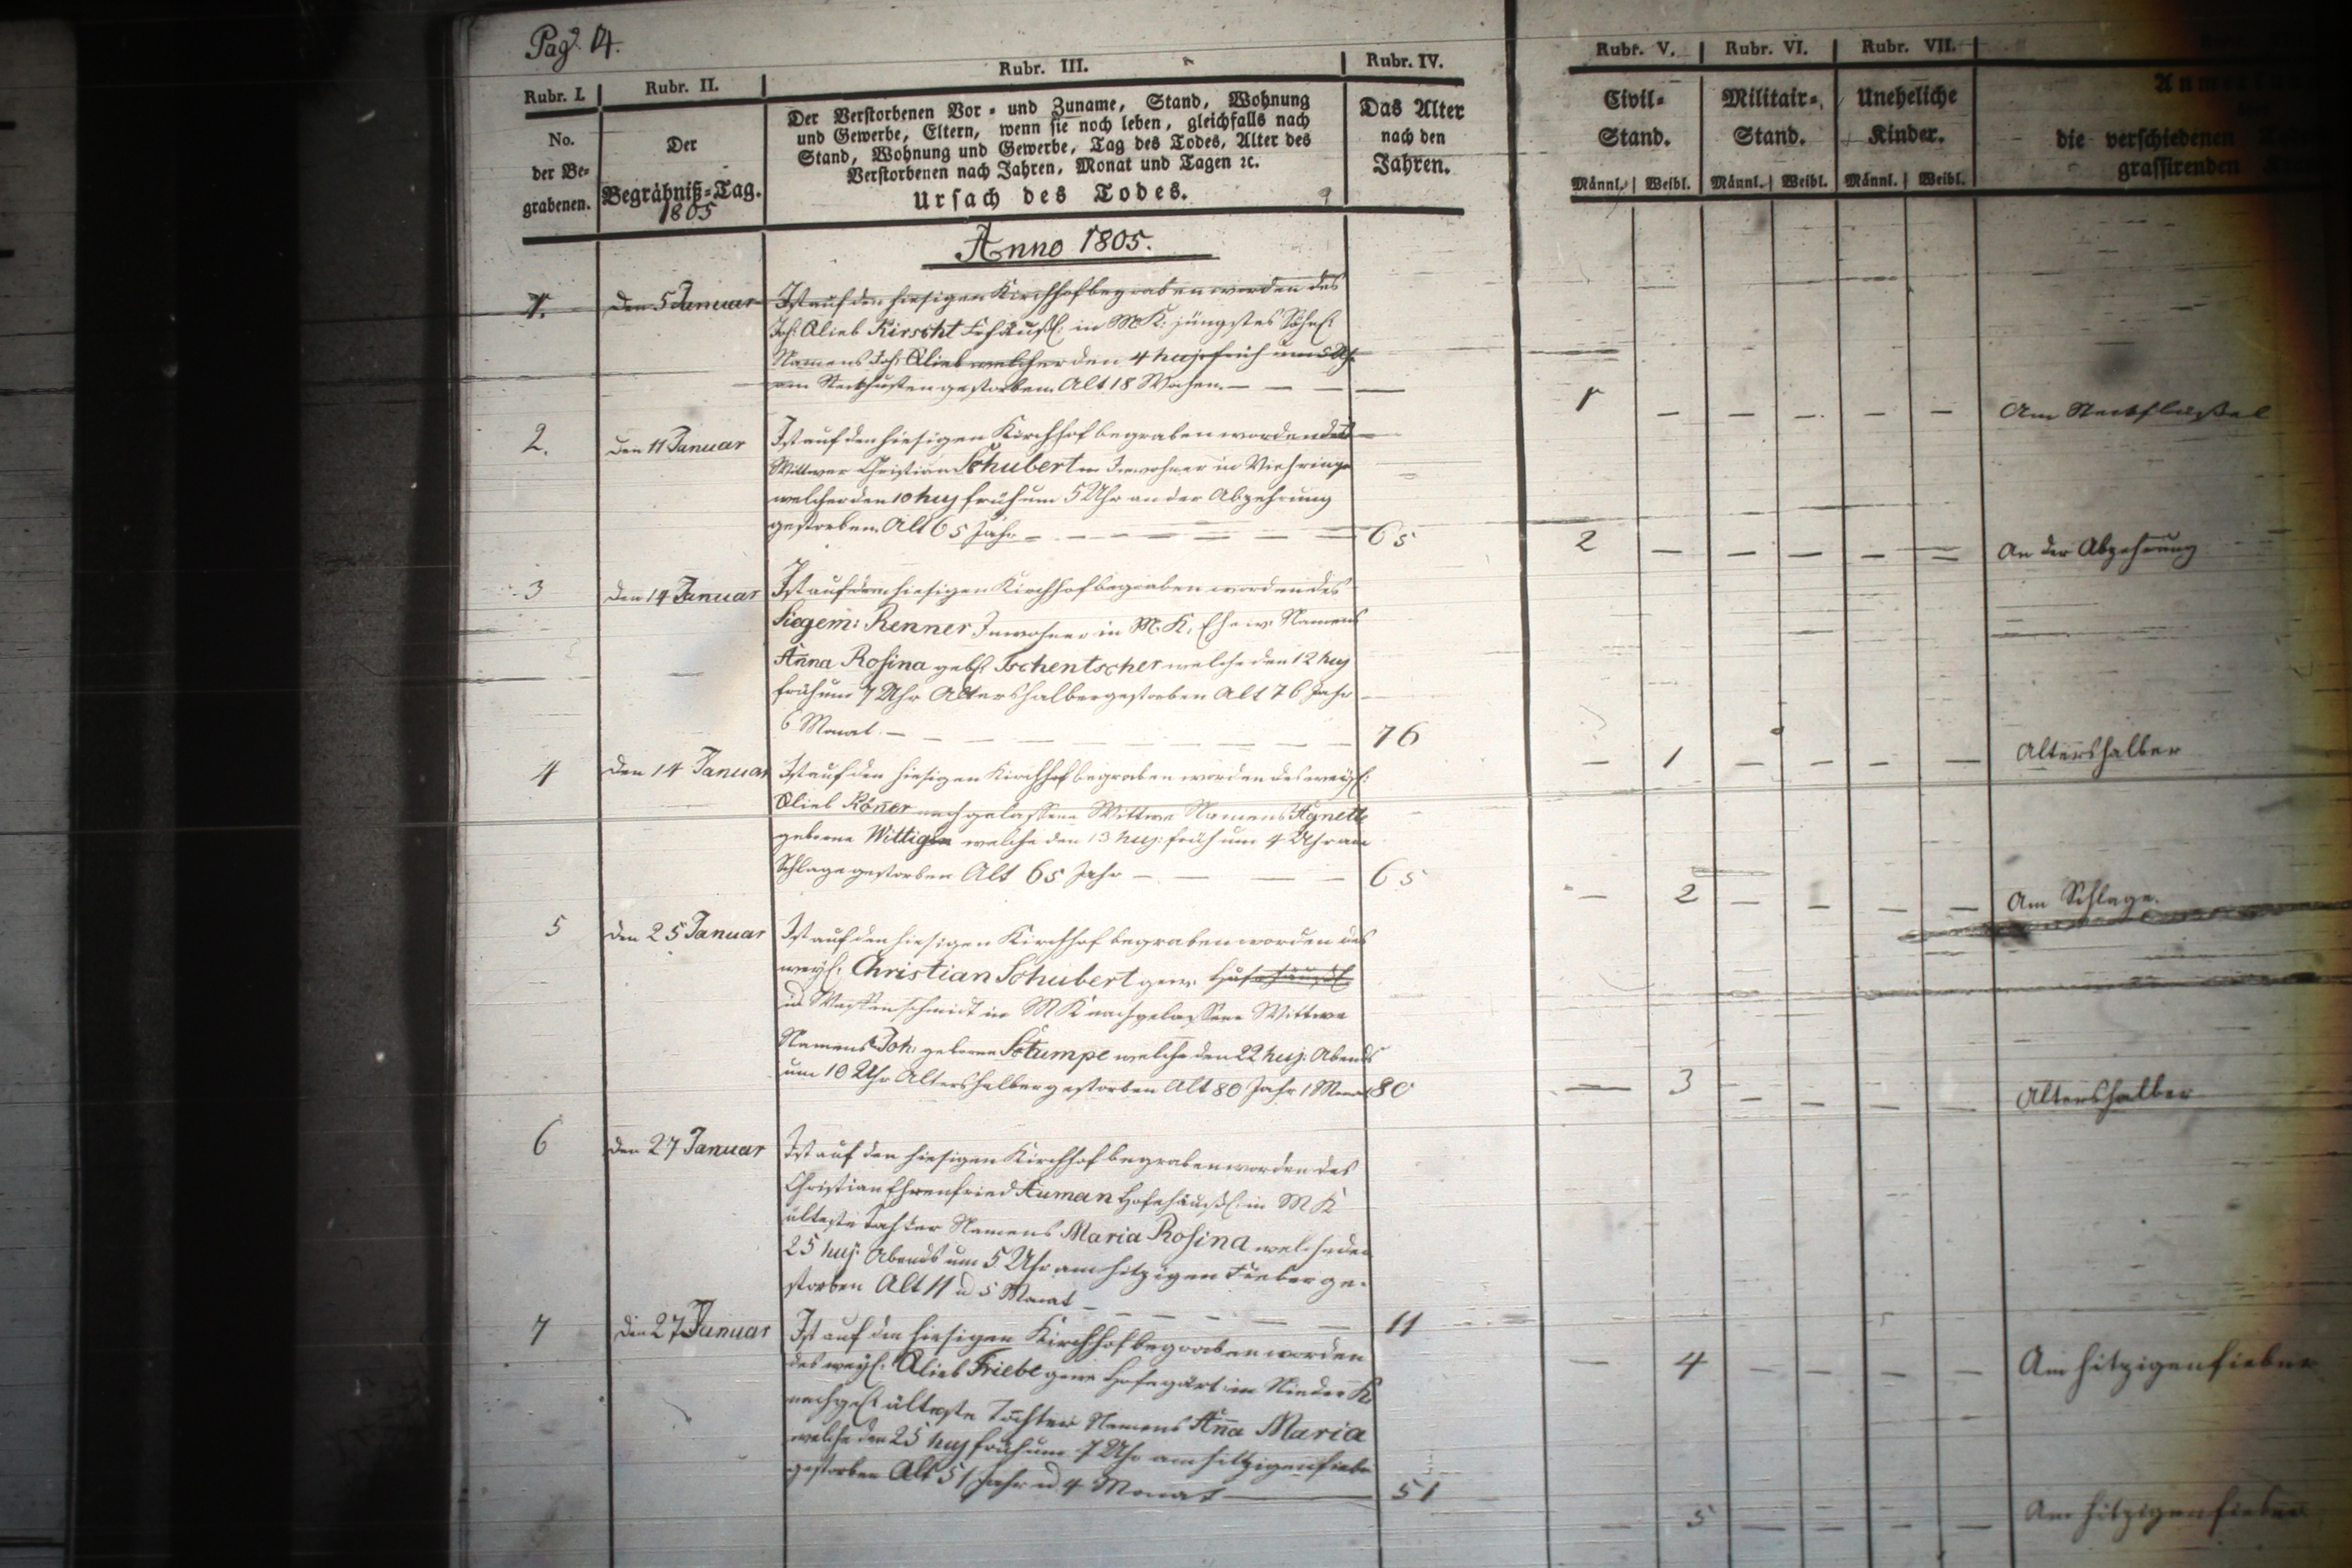 Pag. 14.
Rubr. I. Rubr. II. Rubr. III. Rubr. IV. Rubr. V. Rubr. VI. Rubr. VII.
No.
der Be-
grabenen.
Der
Begräbniß-Tag.
1805
Der Verstorbenen Vor- und Zuname, Stand, Wohnung
und Gewerbe, Eltern, wenn sie noch leben, gleichfalls nach
Stand, Wohnung und Gewerbe, Tag des Todes, Alter des
Verstorbenen nach Jahren, Monat und Tagen ꝛc.
Ursach des Todes.
Das Alter
nach den
Jahren.
Civil-
Stand.
Männl. Weibl.
Militair-
Stand.
Männl. Weibl.
Uneheliche
Kinder.
Männl. Weibl.
die verschiedenen
grassirenden
Anno 1805.
1. den 5 Januar Ist auf den hiesigen Kirchhof begraben worden des
Joh. Glieb Kirscht in M K: jüngstes Söhnl.
Namens Joh: Glieb welcher den 4 huj: früh um 5 Uhr
am Steckhusten gestorben. Alt 18 Wochen. — — —
1 — — — — — Am
2. den 11 Januar Ist auf den hiesigen Kirchhof begraben worden des
Wittwer Christian Schubert Inwohner in
welcher den 10 huj früh um 5 Uhr an der Abzehrung
gestorben. Alt 65 Jahr — — — 65
2 — — — — — An der Abzehrung
3 den 14 Januar Ist auf dem hiesigen Kirchhof begraben worden des
Siegem: Renner Inwohner in M. K. Ehew. Namens
Anna Rosina geb. Tschentscher welche den 12 huj
früh um 7 Uhr Altershalber gestorben Alt 76 Jahr
6 Monat. — — — 76
— 1 — — — — Altershalber
4 den 14 Januar Ist auf den hiesigen Kirchhof begraben worden des weyl:
Glieb nachgelassene Wittwe Namens Agnetta
geborne Wittigin welche den 13 huj: früh um 4 Uhr am
Schlage gestorben Alt 65 Jahr — — — 65
— 2 — — — — Am Schlage.
5 den 25 Januar Ist auf den hiesigen Kirchhof begraben worden des
weyl. Christian Schubert gew.
in M K nachgelassene Wittwe
Namens Joh: geborne Stumpe welche den 22 huj: Abends
um 10 Uhr Altershalber gestorben Alt 80 Jahr 1 Monat 80
— 3 — — — — Altershalber
6 den 27 Januar Ist auf den hiesigen Kirchhof begraben worden des
Christian Ehrenfried Auman Hofehäußl. in M K
älteste Tochter Namens Maria Rosina welche den
25 huj: Abends um 5 Uhr am hitzigen Fieber ge-
storben Alt 11 u 5 Monat — — — 11
— 4 — — — — Am hitzigen fieber
7 den 27 Januar Ist auf den hiesigen Kirchhof begraben worden
des weyl. Glieb Friebe gew. Hofegärt. in Nieder K
nachgel. älteste Tochter Namens Anna Maria
welche den 25 huj früh um 7 Uhr am hitzigen fieber
gestorben Alt 51 Jahr u 4 Monat — 51
— 5 — — — — Am hitzigen fieber